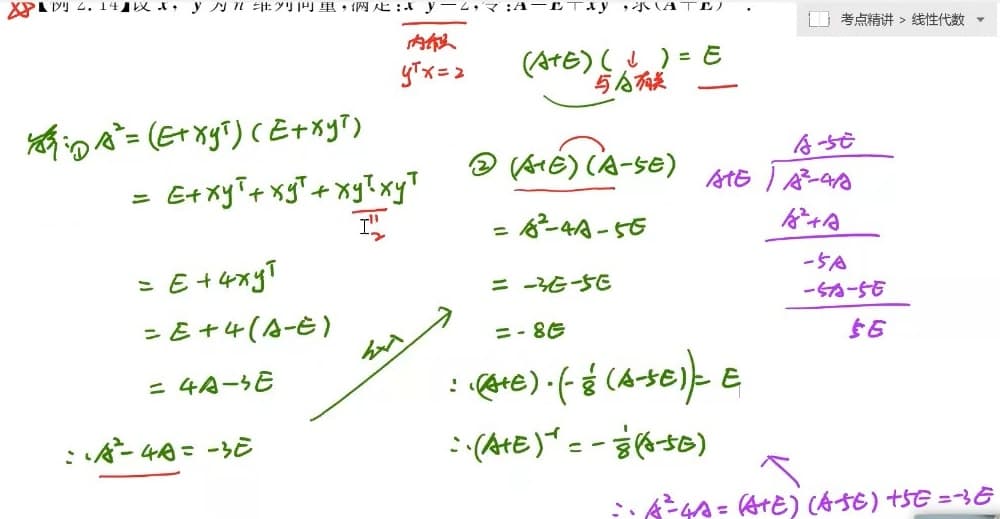 【例 2.14】设 x, y 为 n 维列向量,满足:xᵀy=2,令:A=E+xyᵀ,求(A+E)⁻¹.
考点精讲 > 线性代数
内积
yᵀx=2
(A+E)( ↓ )=E
与A有关
解:① A²=(E+xyᵀ)(E+xyᵀ)
= E+xyᵀ+xyᵀ+xyᵀxyᵀ
"
2
= E+4xyᵀ
= E+4(A-E)
= 4A-3E
∴ A²-4A=-3E
② (A+E)(A-5E)
= A²-4A-5E
= -3E-5E
= -8E
∴ (A+E)·(-1/8(A-5E))=E
∴ (A+E)⁻¹=-1/8(A-5E)
A-5E
A+E A²-4A
A²+A
-5A
-5A-5E
5E
∴ A²-4A=(A+E)(A-5E)+5E=-3E